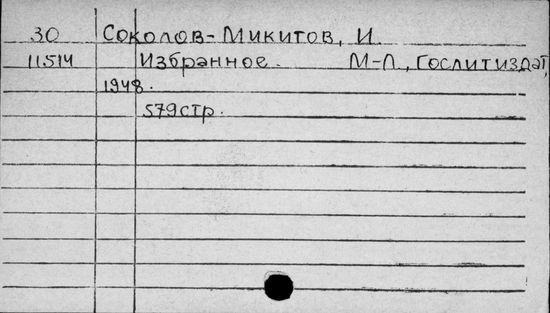 30 Соколов-Микитов, И.
11514 Избранное. М-Л, Гослитиздат,
1948.
579стр.